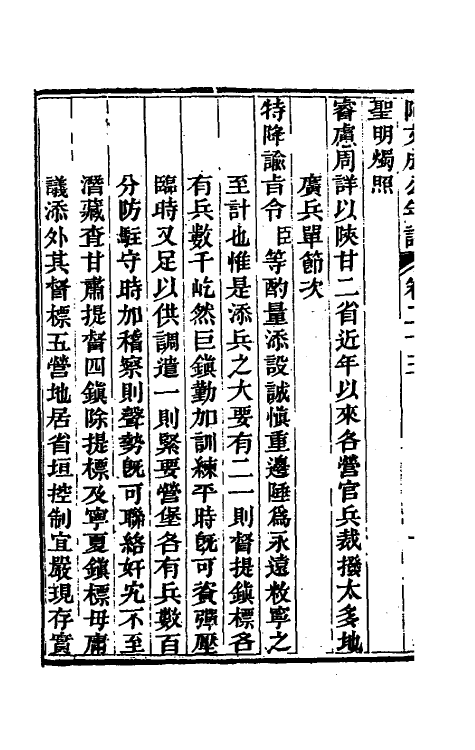 聖明燭照
睿慮周詳以陝甘二省近年以來各營官兵裁撥太多地
廣兵單節次
特降諭旨令臣等酌量添設誠慎重邊陲爲永遠敉寧之
至計也惟是添兵之大要有二一則督提鎮標各
有兵數千屹然巨鎮勤加訓練平時旣可資彈壓
臨時又足以供調遣一則緊要營堡各有兵數百
分防駐守時加稽察則聲勢旣可聯絡奸宄不至
潛藏查甘肅提督四鎮除提標及寧夏鎮標毋庸
議添外其督標五營地居省垣控制宜嚴現存實